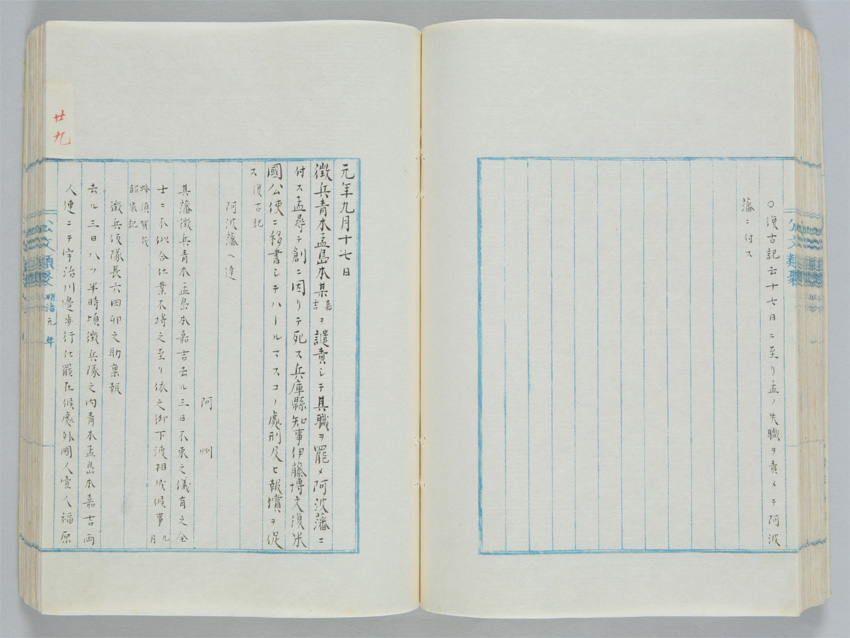 ○復古記云十七日ニ至リ孟ノ失職ヲ責メテ阿波
藩ニ付ス
元年九月十七日
徴兵青木孟島本某嘉吉ヲ譴責シテ其職ヲ罷メ阿波藩ニ
付ス孟尋テ創ニ因リテ死ス兵庫縣知事伊藤博文復米
國公使ニ移書シテハールマスコノ處刑及ヒ報償ヲ促
ス復古記
阿波藩ヘ達
阿州
其藩徴兵青木孟島本嘉吉去ル三日不束之儀有之全
士ニ不似合仕業不埒之至リ依之御下渡相成候事九月
蜂須賀茂
韶家記
徴兵後隊長六田卯之助稟報
去ル三日八ツ半時頃徴兵隊之内青木孟島本嘉吉両
人使ニテ宇治川邊歩行仕罷在候處外國人壹人福原
明治元年
廿九